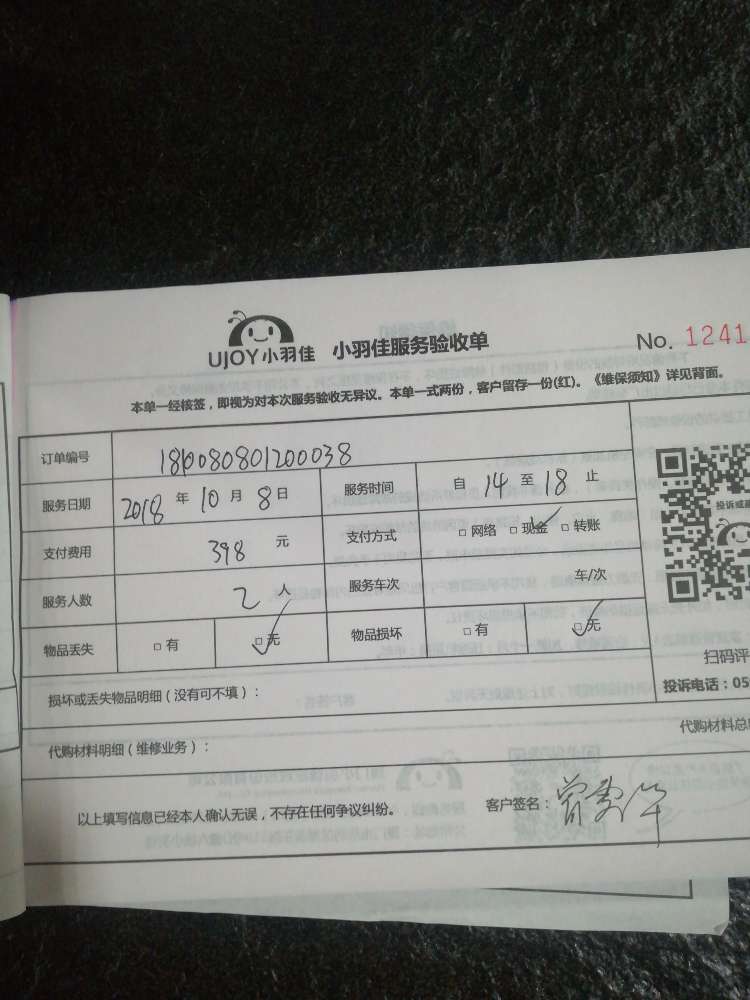 UJOY小羽佳 小羽佳服务验收单 No. 1241
本单一经核签，即视为对本次服务验收无异议。本单一式两份，客户留存一份(红)。《维保须知》详见背面。
订单编号
服务日期 2018 年 10 月 8 日 服务时间 自 14 至 18 止
支付费用 398 元 支付方式 □ 网络 □ 现金 □ 转账
服务人数 2 人 服务车次 车/次
物品丢失 □ 有 □ 无 物品损坏 □ 有 □ 无
损坏或丢失物品明细（没有可不填）：
代购材料明细（维修业务）： 代购材料总
以上填写信息已经本人确认无误，不存在任何争议纠纷。 客户签名：
投诉或
扫码评
投诉电话：05